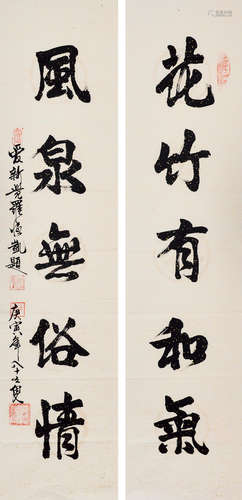 花竹有和氣
風泉無俗情
愛新覺羅
題
庚寅年八十五叟